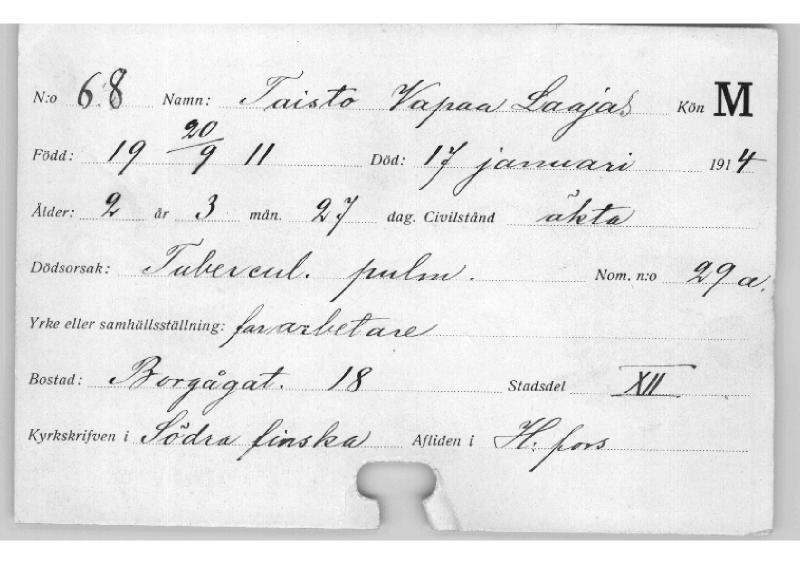 N:o 68 Namn: Taisto Vapaa Laajas Kön M
Född: 19 20/9 11 Död: 17 januari 1914
Ålder: 2 år 3 mån. 27 dag. Civilstånd äkta
Dödsorsak: Tubercul. pulm. Nom. n:o 29 a.
Yrke eller samhällsställning: far arbetare
Bostad: Borgågat. 18 Stadsdel XII
Kyrkskrifven i Södra finska Afliden i H:fors